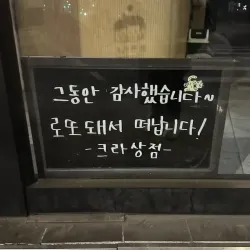 그동안 감사했습니다~
로또돼서 떠납니다!
-크라상점-